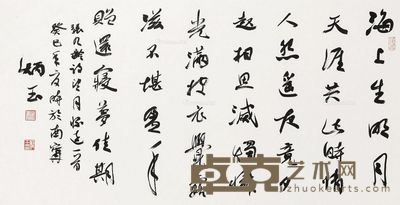 海上生明月
天涯共此時情
人怨遥夜竟夕
起相思滅燭憐
光滿披衣覺露
滋不堪盈手
贈還寢夢佳期
張九齡詩望月懷遠一首
癸巳年夏時於南寧
卓克艺术网